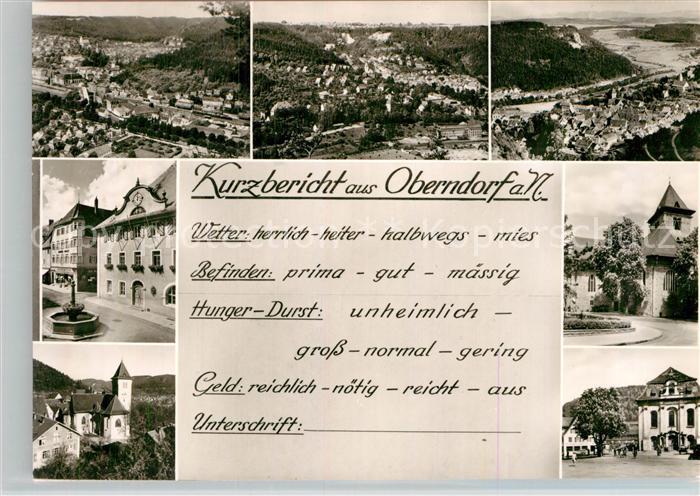 Kurzbericht aus Oberndorf a. N.
Wetter: herrlich - heiter - halbwegs - mies
Befinden: prima - gut - mässig
Hunger-Durst: unheimlich -
groß - normal - gering
Geld: reichlich - nötig - reicht - aus
Unterschrift: